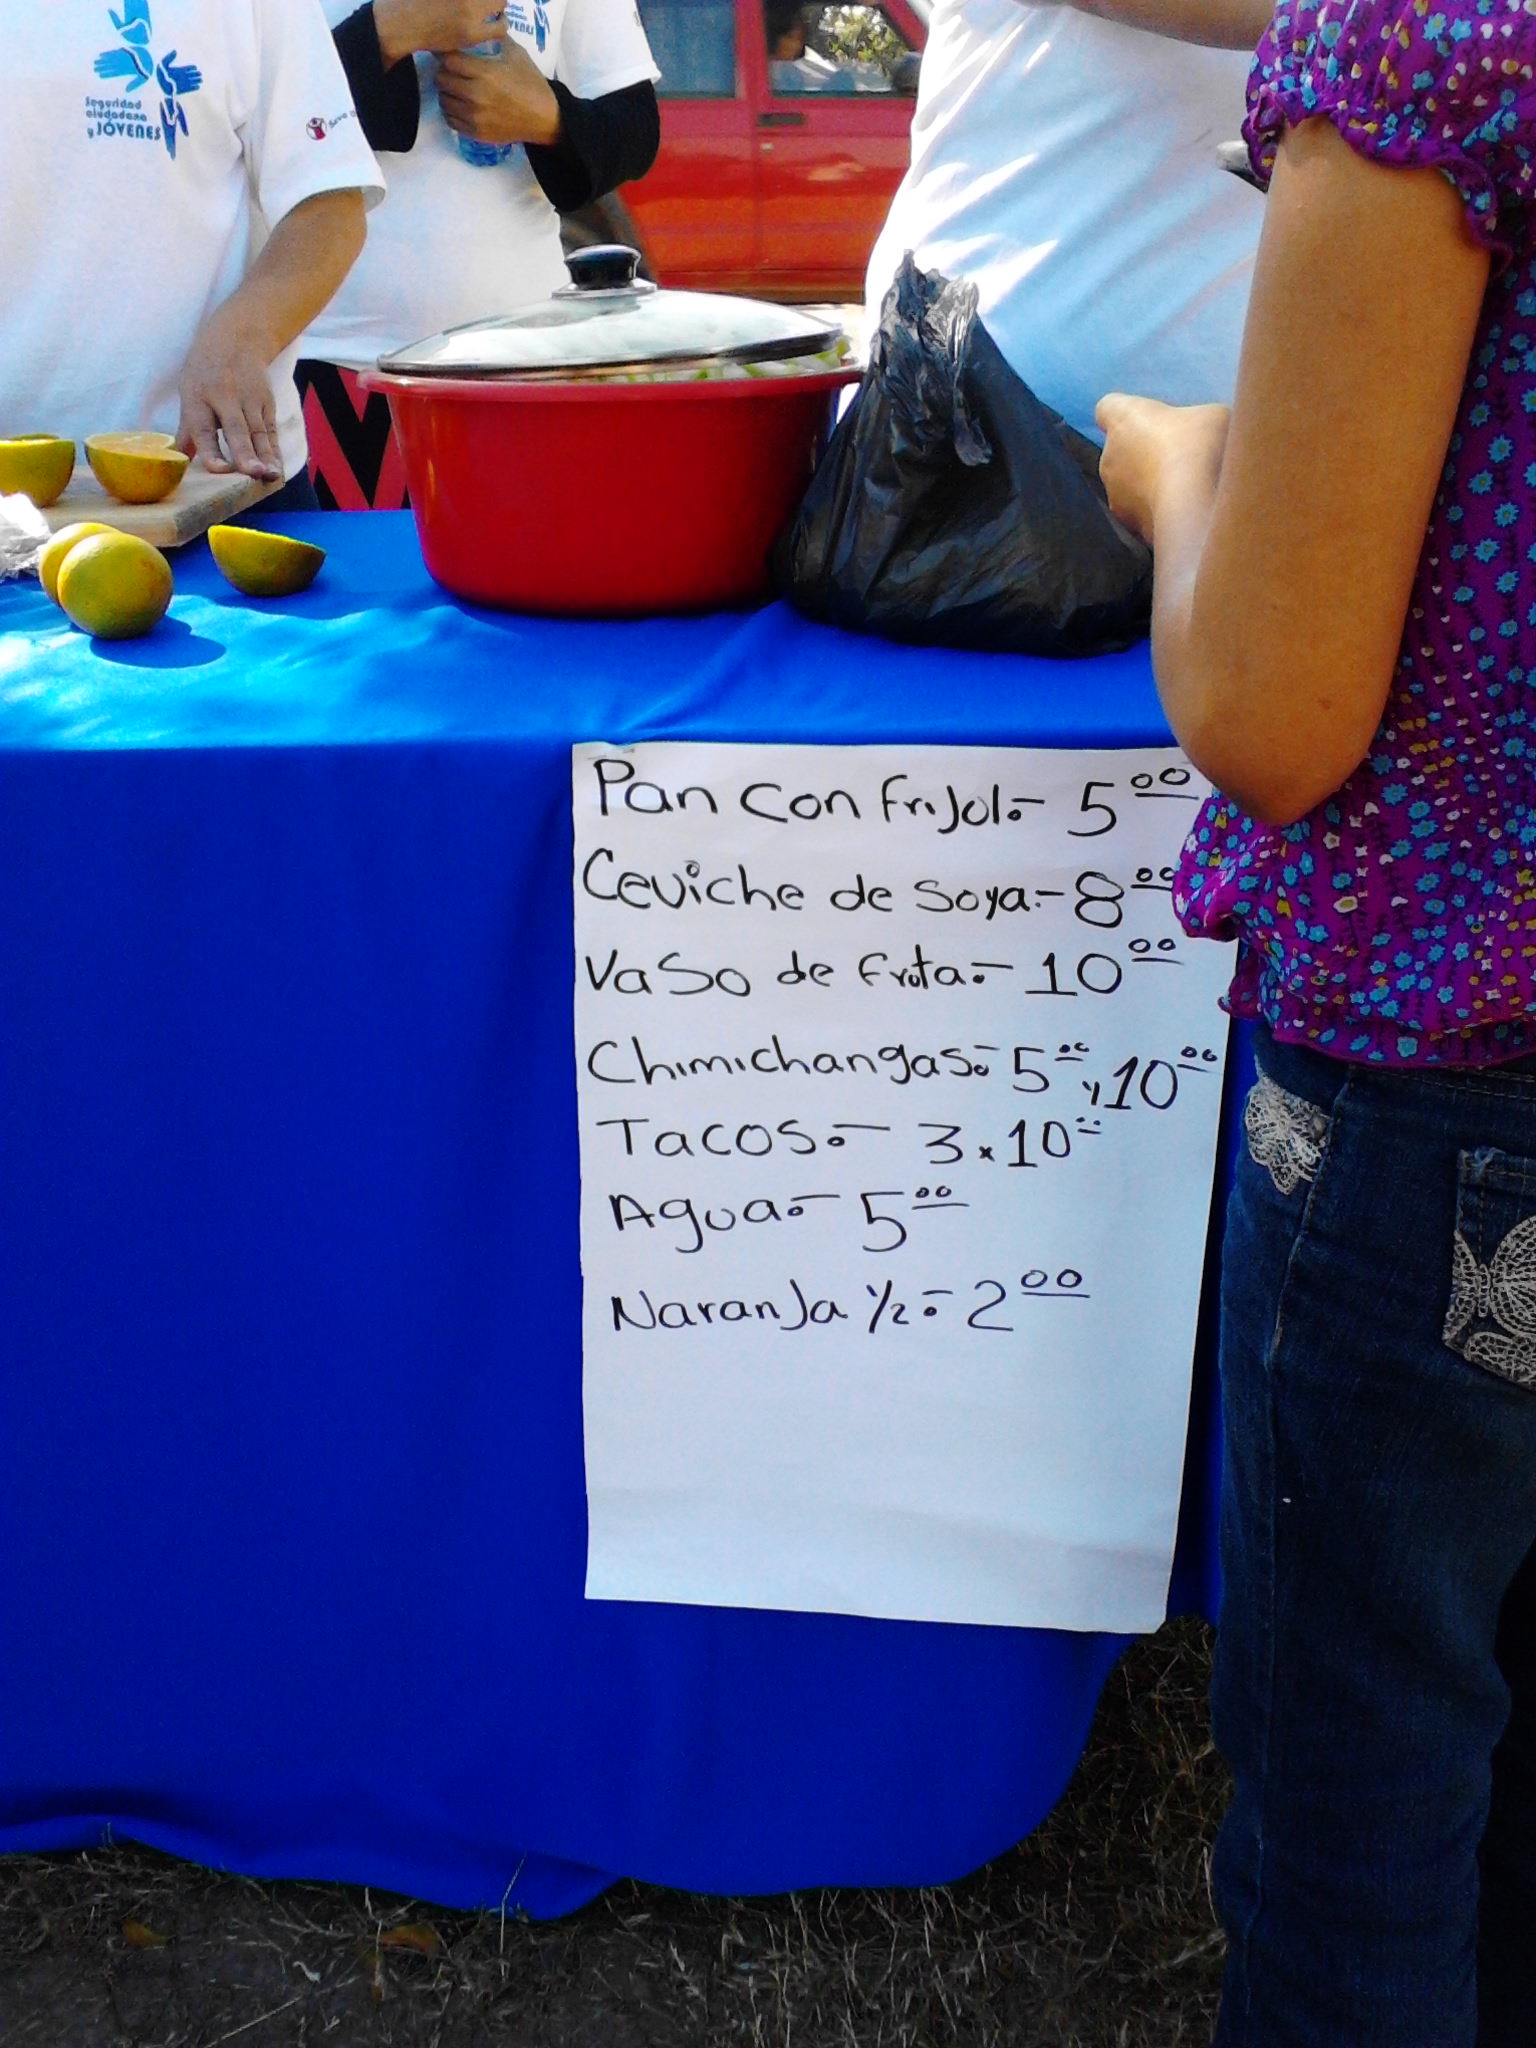 Seguridad
ciudadana
y JÓVENES
Save
VENES
Pan con frijol.- 5 00
Ceviche de soya.- 8 00
Vaso de fruta.- 10 00
Chimichangas.- 5 00 y 10 00
Tacos.- 3 x 10 00
Agua.- 5 00
Naranja 1/2.- 2 00